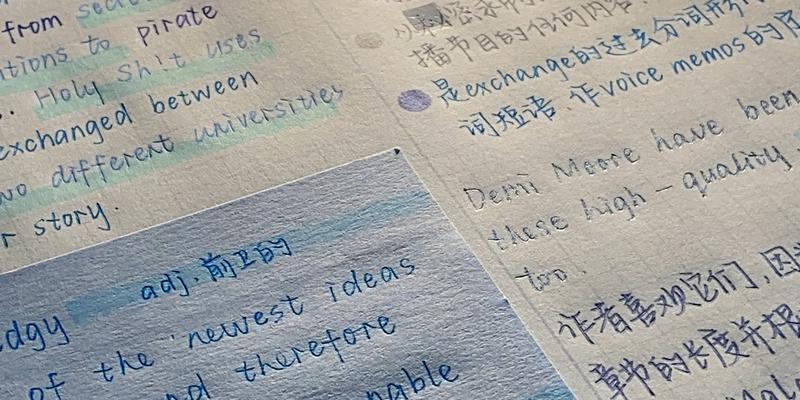 from
itions to pirate
Holy Sh!t uses
exchanged between
two different universities
r story.
adj. 前卫的
dgy
of the newest ideas
nd therefore
nable
播节目的任何内容
是exchange的过去分词形
词短语.作voice memos的
Demi Moore have been
these high-quality
too.
作者喜欢它们,因
章节的长度并根